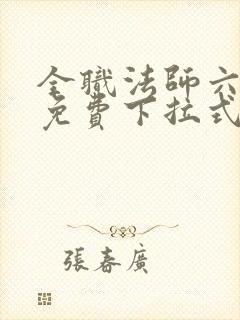 全職法師六
免費下拉式
張春廣